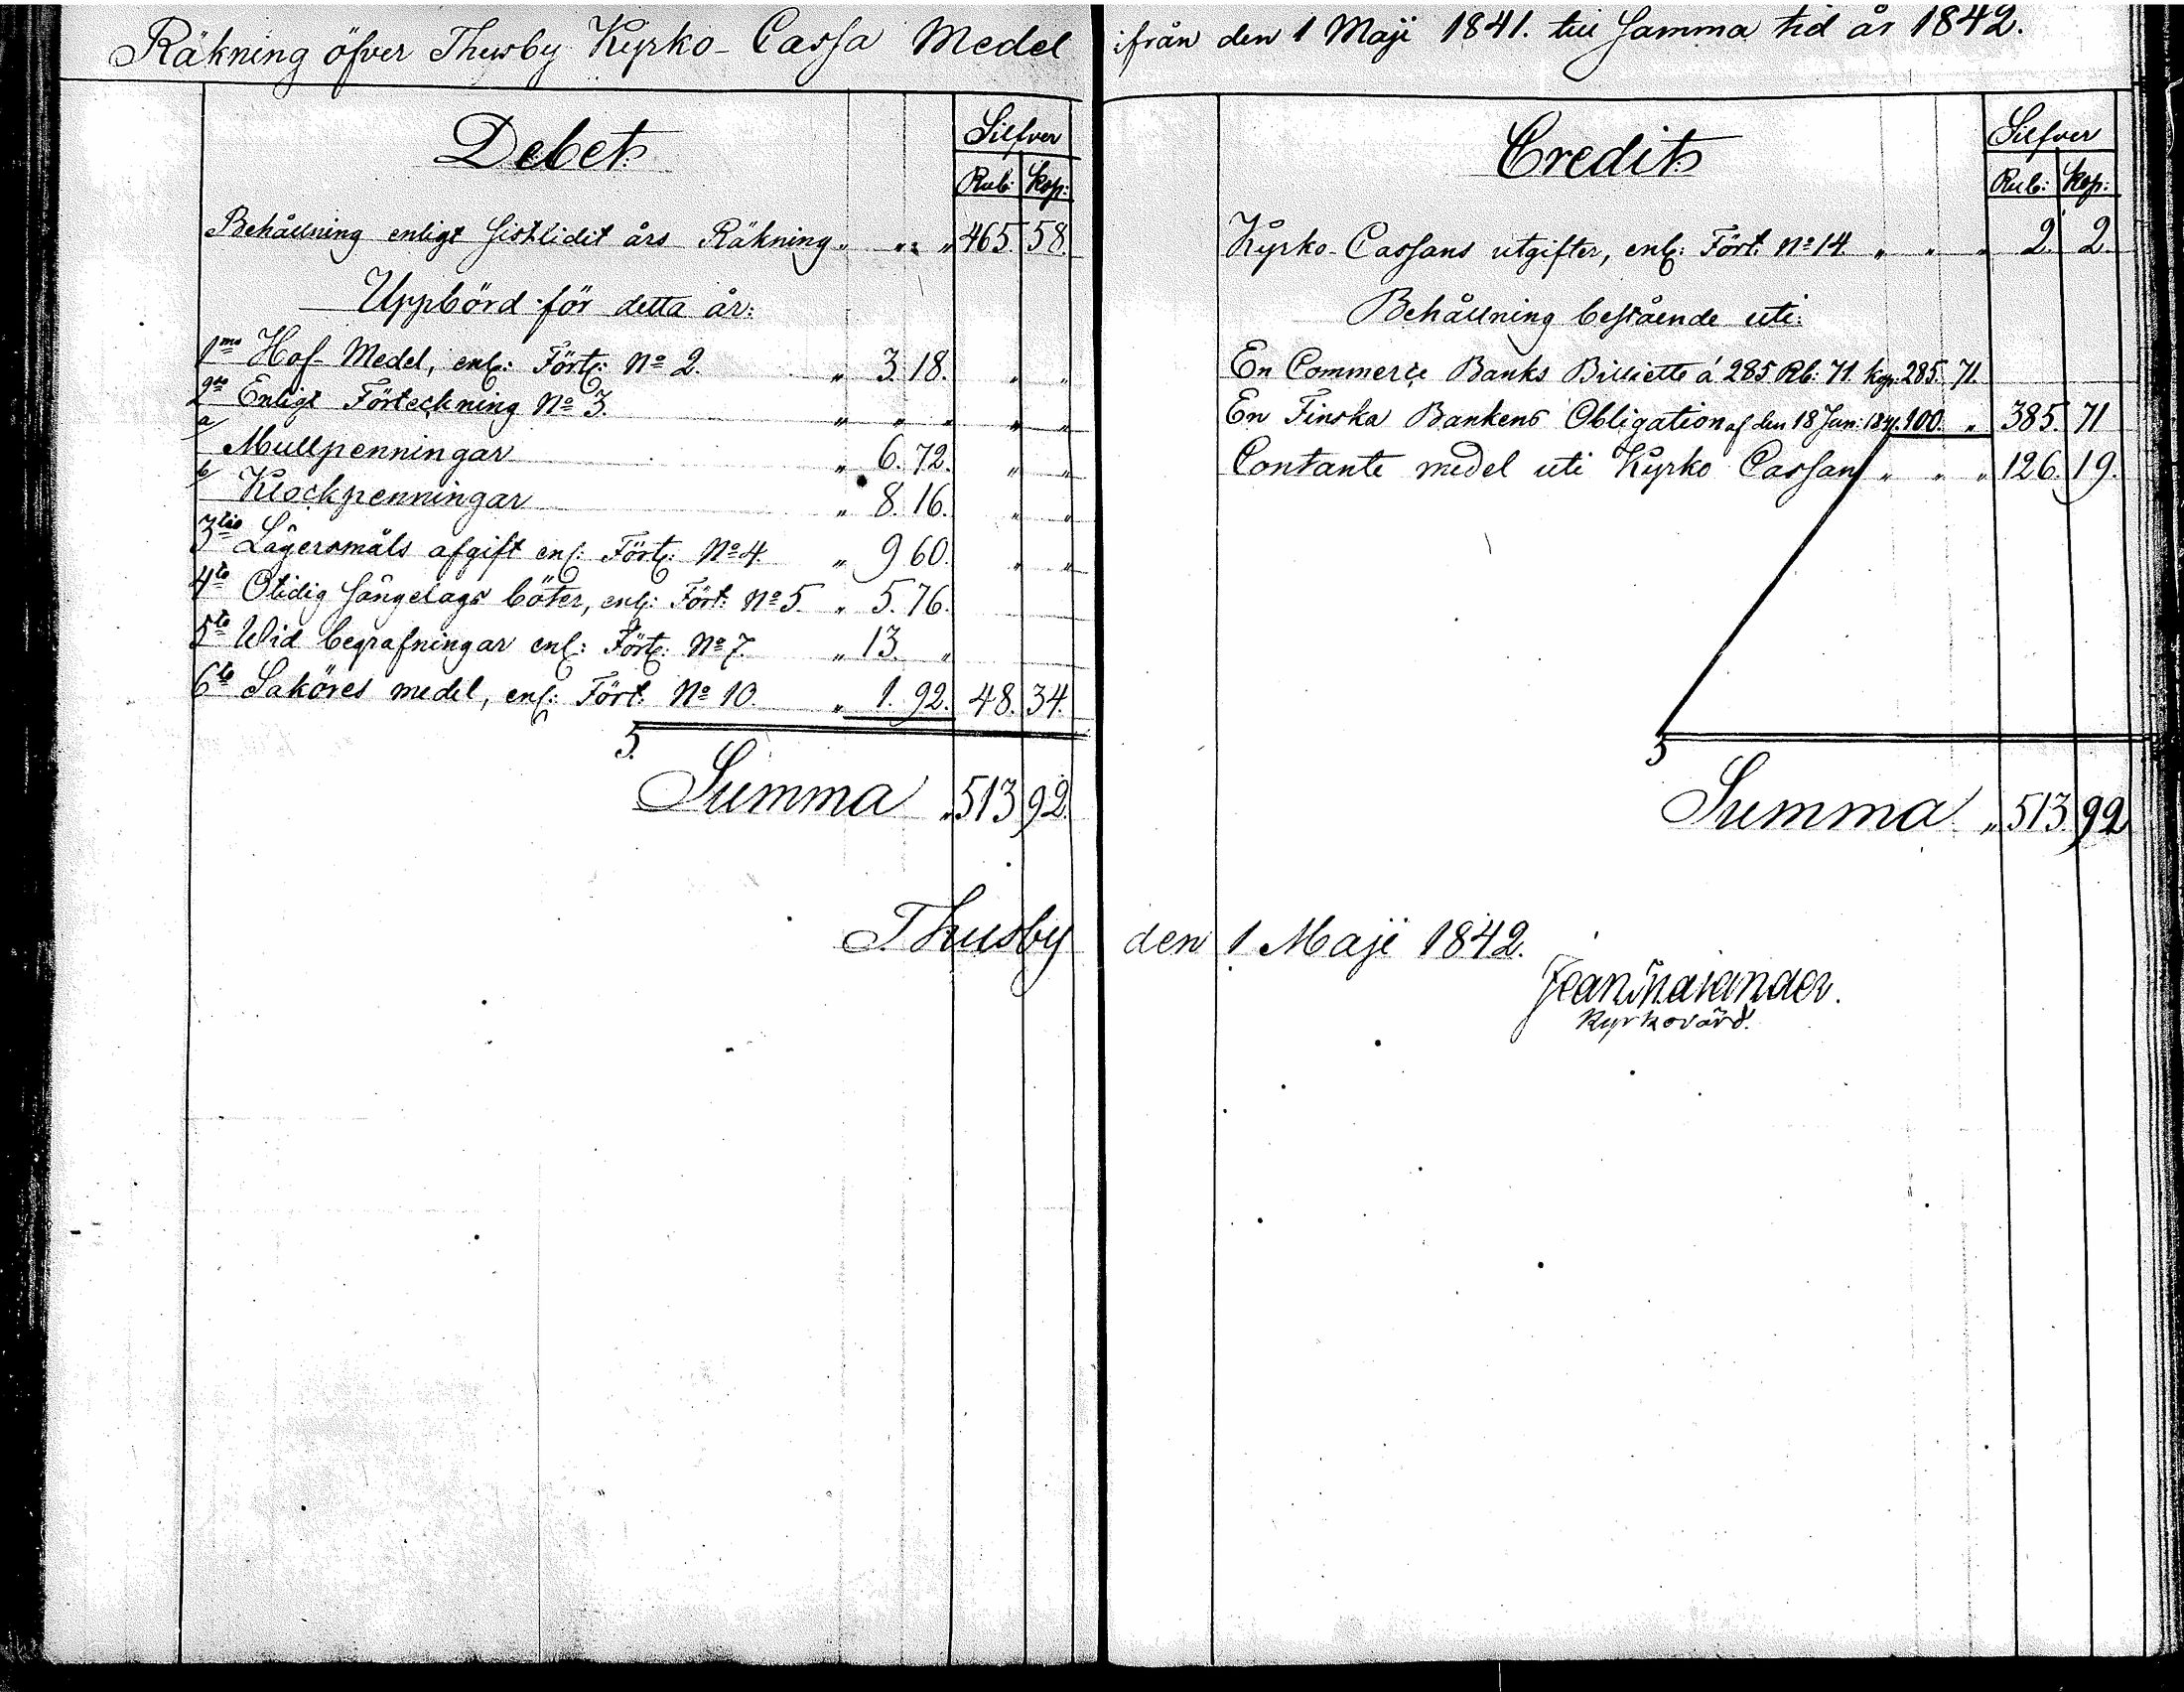 Räkning öfver Thusby Kyrko-Cassa Medel ifrån den 1 Maji 1841. till samma tid år 1842.
Debet
Silfver
Rub: Kop:
Behållning enligt sistlidit års Räkning „ „ „ 465. 58.
Uppbörd för detta år:
1mo Hof-Medel, enl: Fört: No 2. „ 3. 18. „ „
2do Enligt Förteckning No 3. „ „ „ „ „
a/ Mullpenningar „ 6. 72. „ „
b/ Klockpenningar „ 8. 16. „ „
3tio Lägersmåls afgift enl: Fört: No 4. „ 9 60. „ „
4to Otidig sängelags böter, enl: Fört: No 5. „ 5. 76.
5to Wid begrafningar enl: Fört: No 7. „ 13. „
6to Saköres medel, enl: Fört: No 10. „ 1. 92. 48. 34.
S.
Summa „ 513 92.
Credit
Silfver
Rub: Kop:
Kyrko-Cassans utgifter, enl: Fört: No 14. „ „ „ 2. 2.
Behållning bestående uti:
En Commerce Banks Billiette á 285 Rb: 71. kop: 285. 71.
En Finska Bankens Obligation af den 18 Jan: 1841. 100. „ 385. 71
Contante medel uti Kyrko Cassan „ „ „ 126. 19.
S
Summa „ 513. 92
Thusby den 1 Maji 1842.
Jean
Kyrkovärd.